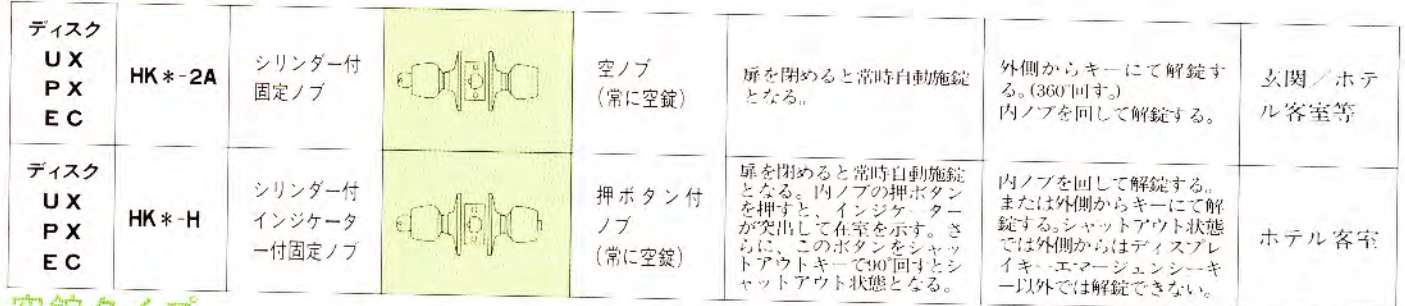 ディスク
UX
PX
EC
HK＊-2A
シリンダー付
固定ノブ
空ノブ
(常に空錠)
扉を閉めると常時自動施錠
となる。
外側からキーにて解錠す
る。(360°回す。)
内ノブを回して解錠する。
玄関／ホテ
ル客室等
ディスク
UX
PX
EC
HK＊-H
シリンダー付
インジケータ
ー付固定ノブ
押ボタン付
ノブ
(常に空錠)
扉を閉めると常時自動施錠
となる。内ノブの押ボタン
を押すと、インジケーター
が突出して在室を示す。さ
らに、このボタンをシャッ
トアウトキーで90°回すとシ
ャットアウト状態となる。
内ノブを回して解錠する。
または外側からキーにて解
錠する。シャットアウト状態
では外側からはディスプレ
イキー、エマージェンシーキ
ー以外では解錠できない。
ホテル客室
空錠タイプ